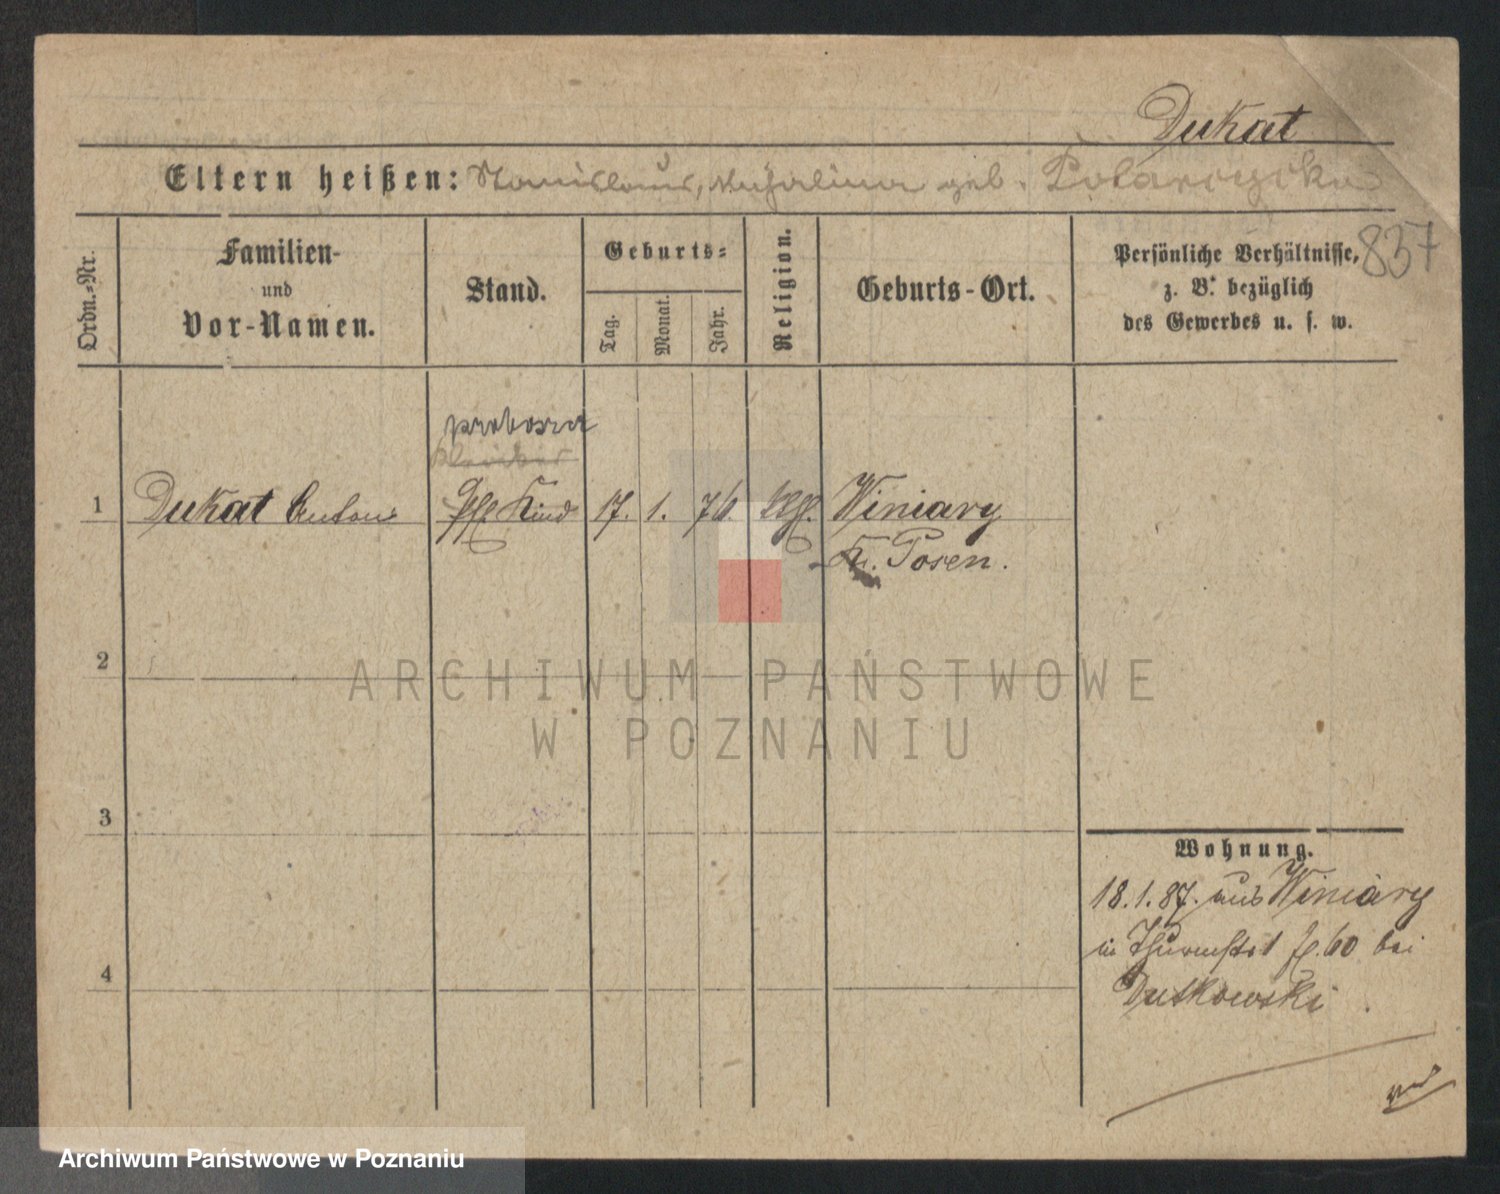 Dukat
Eltern heißen: Stanislaus, geb.
857
Ordn.-Nr.
Familien-
und
Vor-Namen.
Stand.
Geburts-
Tag.
Monat.
Jahr.
Religion.
Geburts-Ort.
Persönliche Verhältnisse,
z. B. bezüglich
des Gewerbes u. s. w.
1 Dukat Anton Pfl. Kind 17. 1. 76. kth. Winiary
Kr. Posen.
2
3
4
Wohnung.
18.1.87. aus Winiary
in Thurmstr. 1 bei
Dutkowski
ARCHIWUM PAŃSTWOWE
W POZNANIU
Archiwum Państwowe w Poznaniu